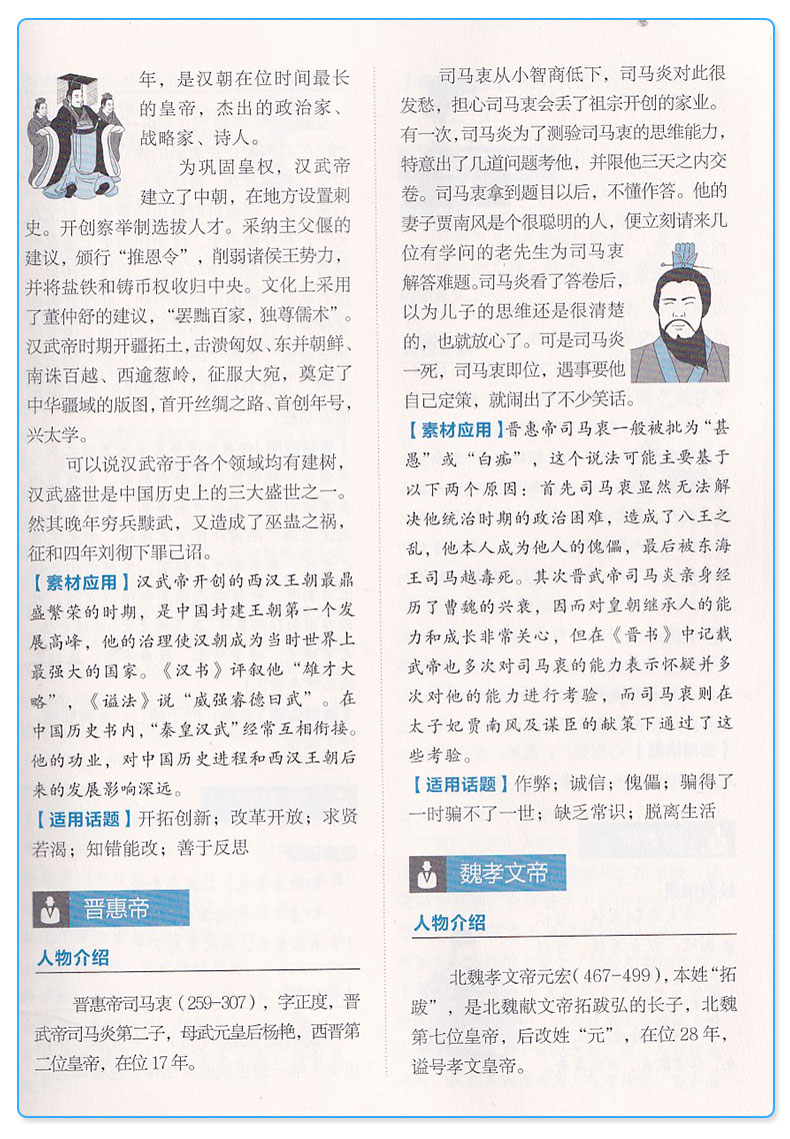 年，是汉朝在位时间最长
的皇帝，杰出的政治家、
战略家、诗人。
为巩固皇权，汉武帝
建立了中朝，在地方设置刺
史。开创察举制选拔人才。采纳主父偃的
建议，颁行“推恩令”，削弱诸侯王势力，
并将盐铁和铸币权收归中央。文化上采用
了董仲舒的建议，“罢黜百家，独尊儒术”。
汉武帝时期开疆拓土，击溃匈奴、东并朝鲜、
南诛百越、西逾葱岭，征服大宛，奠定了
中华疆域的版图，首开丝绸之路、首创年号，
兴太学。
可以说汉武帝于各个领域均有建树，
汉武盛世是中国历史上的三大盛世之一。
然其晚年穷兵黩武，又造成了巫蛊之祸，
征和四年刘彻下罪己诏。
【素材应用】汉武帝开创的西汉王朝最鼎
盛繁荣的时期，是中国封建王朝第一个发
展高峰，他的治理使汉朝成为当时世界上
最强大的国家。《汉书》评叙他“雄才大
略”，《谥法》说“威强睿德曰武”。在
中国历史书内，“秦皇汉武”经常互相衔接。
他的功业，对中国历史进程和西汉王朝后
来的发展影响深远。
【适用话题】开拓创新；改革开放；求贤
若渴；知错能改；善于反思
晋惠帝
人物介绍
晋惠帝司马衷（259-307），字正度，晋
武帝司马炎第二子，母武元皇后杨艳，西晋第
二位皇帝，在位17年。
司马衷从小智商低下，司马炎对此很
发愁，担心司马衷会丢了祖宗开创的家业。
有一次，司马炎为了测验司马衷的思维能力，
特意出了几道问题考他，并限他三天之内交
卷。司马衷拿到题目以后，不懂作答。他的
妻子贾南风是个很聪明的人，便立刻请来几
位有学问的老先生为司马衷
解答难题。司马炎看了答卷后，
以为儿子的思维还是很清楚
的，也就放心了。可是司马炎
一死，司马衷即位，遇事要他
自己定策，就闹出了不少笑话。
【素材应用】晋惠帝司马衷一般被批为“甚
愚”或“白痴”，这个说法可能主要基于
以下两个原因：首先司马衷显然无法解
决他统治时期的政治困难，造成了八王之
乱，他本人成为他人的傀儡，最后被东海
王司马越毒死。其次晋武帝司马炎亲身经
历了曹魏的兴衰，因而对皇朝继承人的能
力和成长非常关心，但在《晋书》中记载
武帝也多次对司马衷的能力表示怀疑并多
次对他的能力进行考验，而司马衷则在
太子妃贾南风及谋臣的献策下通过了这
些考验。
【适用话题】作弊；诚信；傀儡；骗得了
一时骗不了一世；缺乏常识；脱离生活
魏孝文帝
人物介绍
北魏孝文帝元宏（467-499），本姓“拓
跋”，是北魏献文帝拓跋弘的长子，北魏
第七位皇帝，后改姓“元”，在位28年，
谥号孝文皇帝。